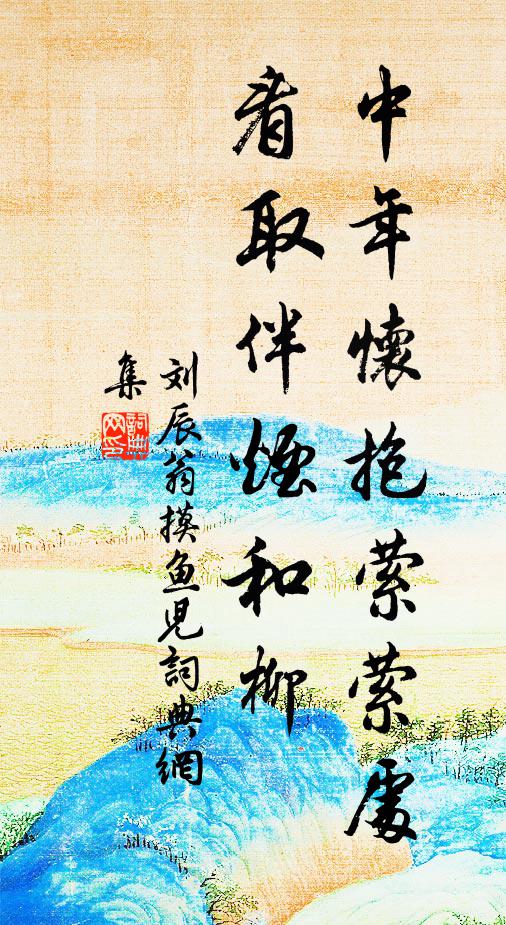 中年懷抱縈縈處
看取伴煙和柳
刘辰翁摸鱼児詞典網
集
詞典網